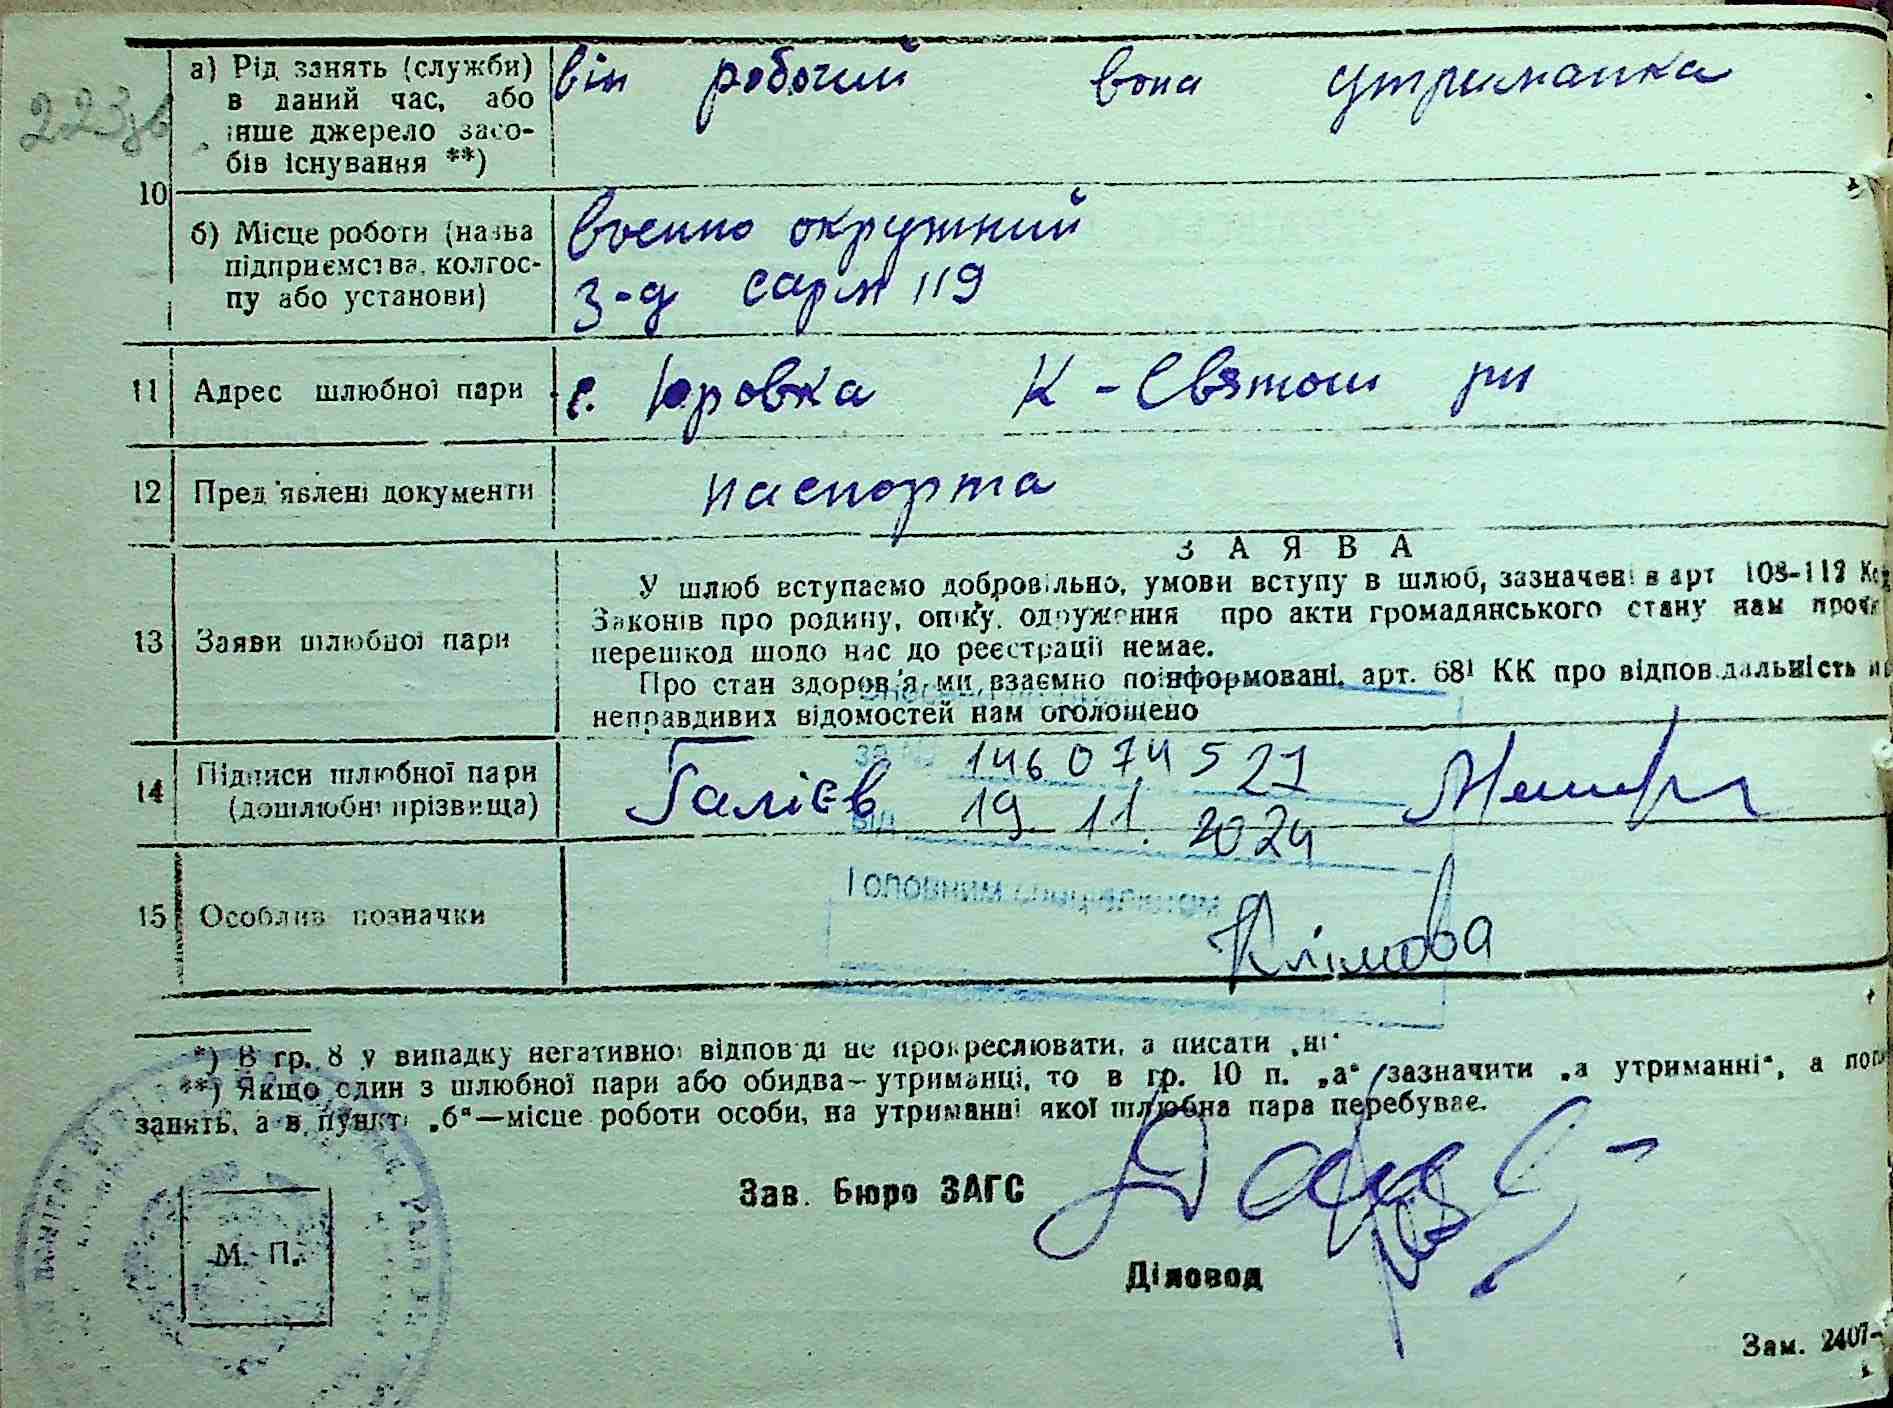 223зв
а) Рід занять (служби) в даний час, або інше джерело засобів існування **)
він робочий вона утриманка
10
б) Місце роботи (назва підприємства, колгоспу або установи)
военно окружний
з-д сарм 119
11 Адрес шлюбної пари
с. Юровка К-Святош рн
12 Пред'явлені документи
паспорта
13 Заяви шлюбної пари
ЗАЯВА
У шлюб вступаємо добровільно, умови вступу в шлюб, зазначені в арт 108-112
Законів про родину, опіку, одруження про акти громадянського стану нам
перешкод щодо нас до реєстрації немає.
Про стан здоров'я ми взаємно поінформовані, арт. 68¹ КК про відповідальність
неправдивих відомостей нам оголошено
14 Підписи шлюбної пари (дошлюбні прізвища)
Галієв
за № 146074527
від 19. 11. 2024
15 Особлив позначки
Клімова
*) В гр. 8 у випадку негативної відповіді не прокреслювати, а писати „ні"
**) Якщо один з шлюбної пари або обидва—утриманці, то в гр. 10 п. „а" зазначити „а утриманні", а
занять, а в пункті „б"—місце роботи особи, на утриманні якої шлюбна пара перебуває.
Зав. Бюро ЗАГС
М. П.
Діловод
Зам. 2407-